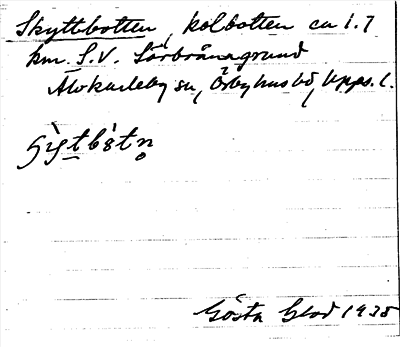 Skyttbotten, kolbotten ca 1.7
km. S.V. Sörbrånagrund
Älvkarleby sn, Örbyhus hd, Upps. l.
Gösta Blod 1935